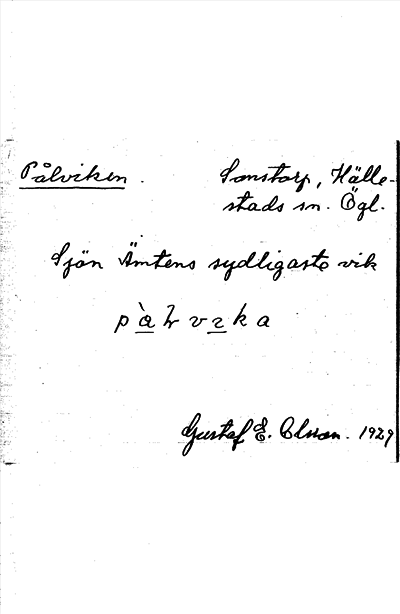 Pålviken. Sonstorp, Hälle-
stads sn. Ögl.
Sjön Ämtens sydligaste vik
Gustaf E. Olsson. 1929